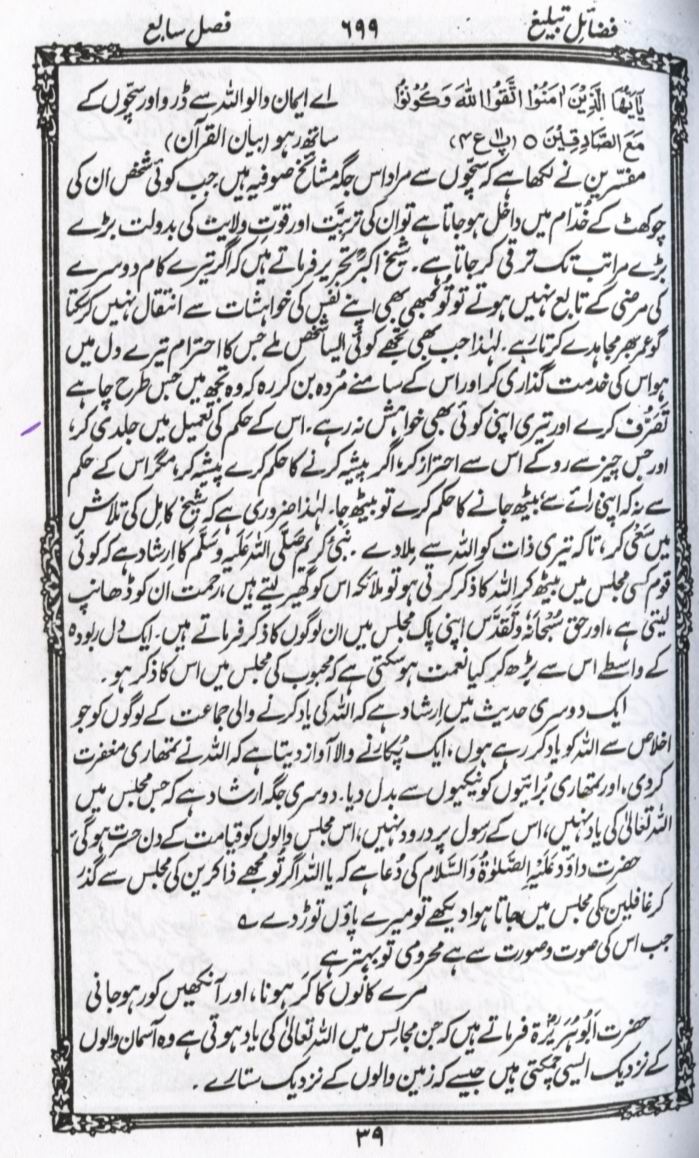 فضائل تبلیغ ۶۹۹ فصل سابع
یٰۤاَیُّهَا الَّذِیْنَ اٰمَنُوا اتَّقُوا اللّٰهَ وَكُوْنُوْا اے ایمان والو اللہ سے ڈرو اور سچّوں کے
مَعَ الصَّادِقِیْنَ ○ (پ۱۱ ع۴) ساتھ رہو (بیان القرآن)
مفسّرین نے لکھا ہے کہ سچّوں سے مراد اس جگہ مشائخ صوفیہ ہیں جب کوئی شخص ان کی
چوکھٹ کے خُدّام میں داخل ہو جاتا ہے تو ان کی تربیّت اور قوّتِ ولایت کی بدولت بڑے
بڑے مراتب تک ترقی کر جاتا ہے۔ شیخ اکبرؒ تحریر فرماتے ہیں کہ اگر تیرے کام دوسرے
کی مرضی کے تابع نہیں ہوتے تو تو کبھی بھی اپنے نفس کی خواہشات سے انتقال نہیں کر سکتا
گو عمر بھر مجاہدے کرتا رہے۔ لہٰذا جب بھی تجھے کوئی ایسا شخص ملے جس کا احترام تیرے دل میں
ہو اس کی خدمت گذاری کر اور اس کے سامنے مُردہ بن کر رہ کہ وہ تجھ میں جس طرح چاہے
تصرّف کرے اور تیری اپنی کوئی بھی خواہش نہ رہے۔ اس کے حکم کی تعمیل میں جلدی کر،
اور جس چیز سے روکے اس سے احتراز کر، اگر پیشہ کرنے کا حکم کرے پیشہ کر، مگر اس کے حکم
سے نہ کہ اپنی رائے سے بیٹھ جانے کا حکم کرے تو بیٹھ جا۔ لہٰذا ضروری ہے کہ شیخِ کامل کی تلاش
میں سَعْی کر، تاکہ تیری ذات کو اللہ سے ملا دے۔ نبی کریم صَلَّی اللہُ عَلَیْہِ وَسَلَّم کا ارشاد ہے کہ کوئی
قوم کسی مجلس میں بیٹھ کر اللہ کا ذکر کرتی ہو تو ملائکہ اس کو گھیر لیتے ہیں، رحمت ان کو ڈھانپ
لیتی ہے، اور حق سُبْحَانَہٗ وَتَقَدَّس اپنی پاک مجلس میں ان لوگوں کا ذکر فرماتے ہیں۔ ایک دل ربودہ
کے واسطے اس سے بڑھ کر کیا نعمت ہو سکتی ہے کہ محبوب کی مجلس میں اس کا ذکر ہو۔
ایک دوسری حدیث میں ارشاد ہے کہ اللہ کی یاد کرنے والی جماعت کے لوگوں کو جو
اخلاص سے اللہ کو یاد کر رہے ہوں، ایک پُکارنے والا آواز دیتا ہے کہ اللہ نے تمھاری مغفرت
کر دی، اور تمھاری بُرائیوں کو نیکیوں سے بدل دیا۔ دوسری جگہ ارشاد ہے کہ جس مجلس میں
اللہ تعالیٰ کی یاد نہیں، اس کے رسول پر درود نہیں، اس مجلس والوں کو قیامت کے دن حسرت ہوگی،
حضرت داؤد عَلَیْہِ الصَّلٰوۃُ وَالسَّلَام کی دُعا ہے کہ یا اللہ اگر تو مجھے ذاکرین کی مجلس سے گذر
کر غافلین کی مجلس میں جاتا ہوا دیکھے تو میرے پاؤں توڑ دے ؎
جب اس کی صوت و صورت سے ہے محرومی تو بہتر ہے
مرے کانوں کا کر ہونا، اور آنکھیں کور ہو جانی
حضرت ابُو ہُرَیْرَہؓ فرماتے ہیں کہ جن مجالس میں اللہ تعالیٰ کی یاد ہوتی ہے وہ آسمان والوں
کے نزدیک ایسی چمکتی ہیں جیسے کہ زمین والوں کے نزدیک ستارے۔
۳۹